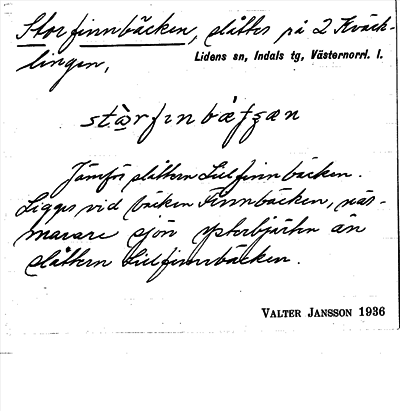 Storfinnbäcken, slåttes på 2 Kväck-
lingen,
Lidens sn, Indals tg, Västernorrl. l.
Jämför slåttern Lillfinnbäcken.
Ligger vid bäcken Finnbäcken, när-
marare sjön Ysterbjärten än
slåttern Lillfinnbäcken.
VALTER JANSSON 1936